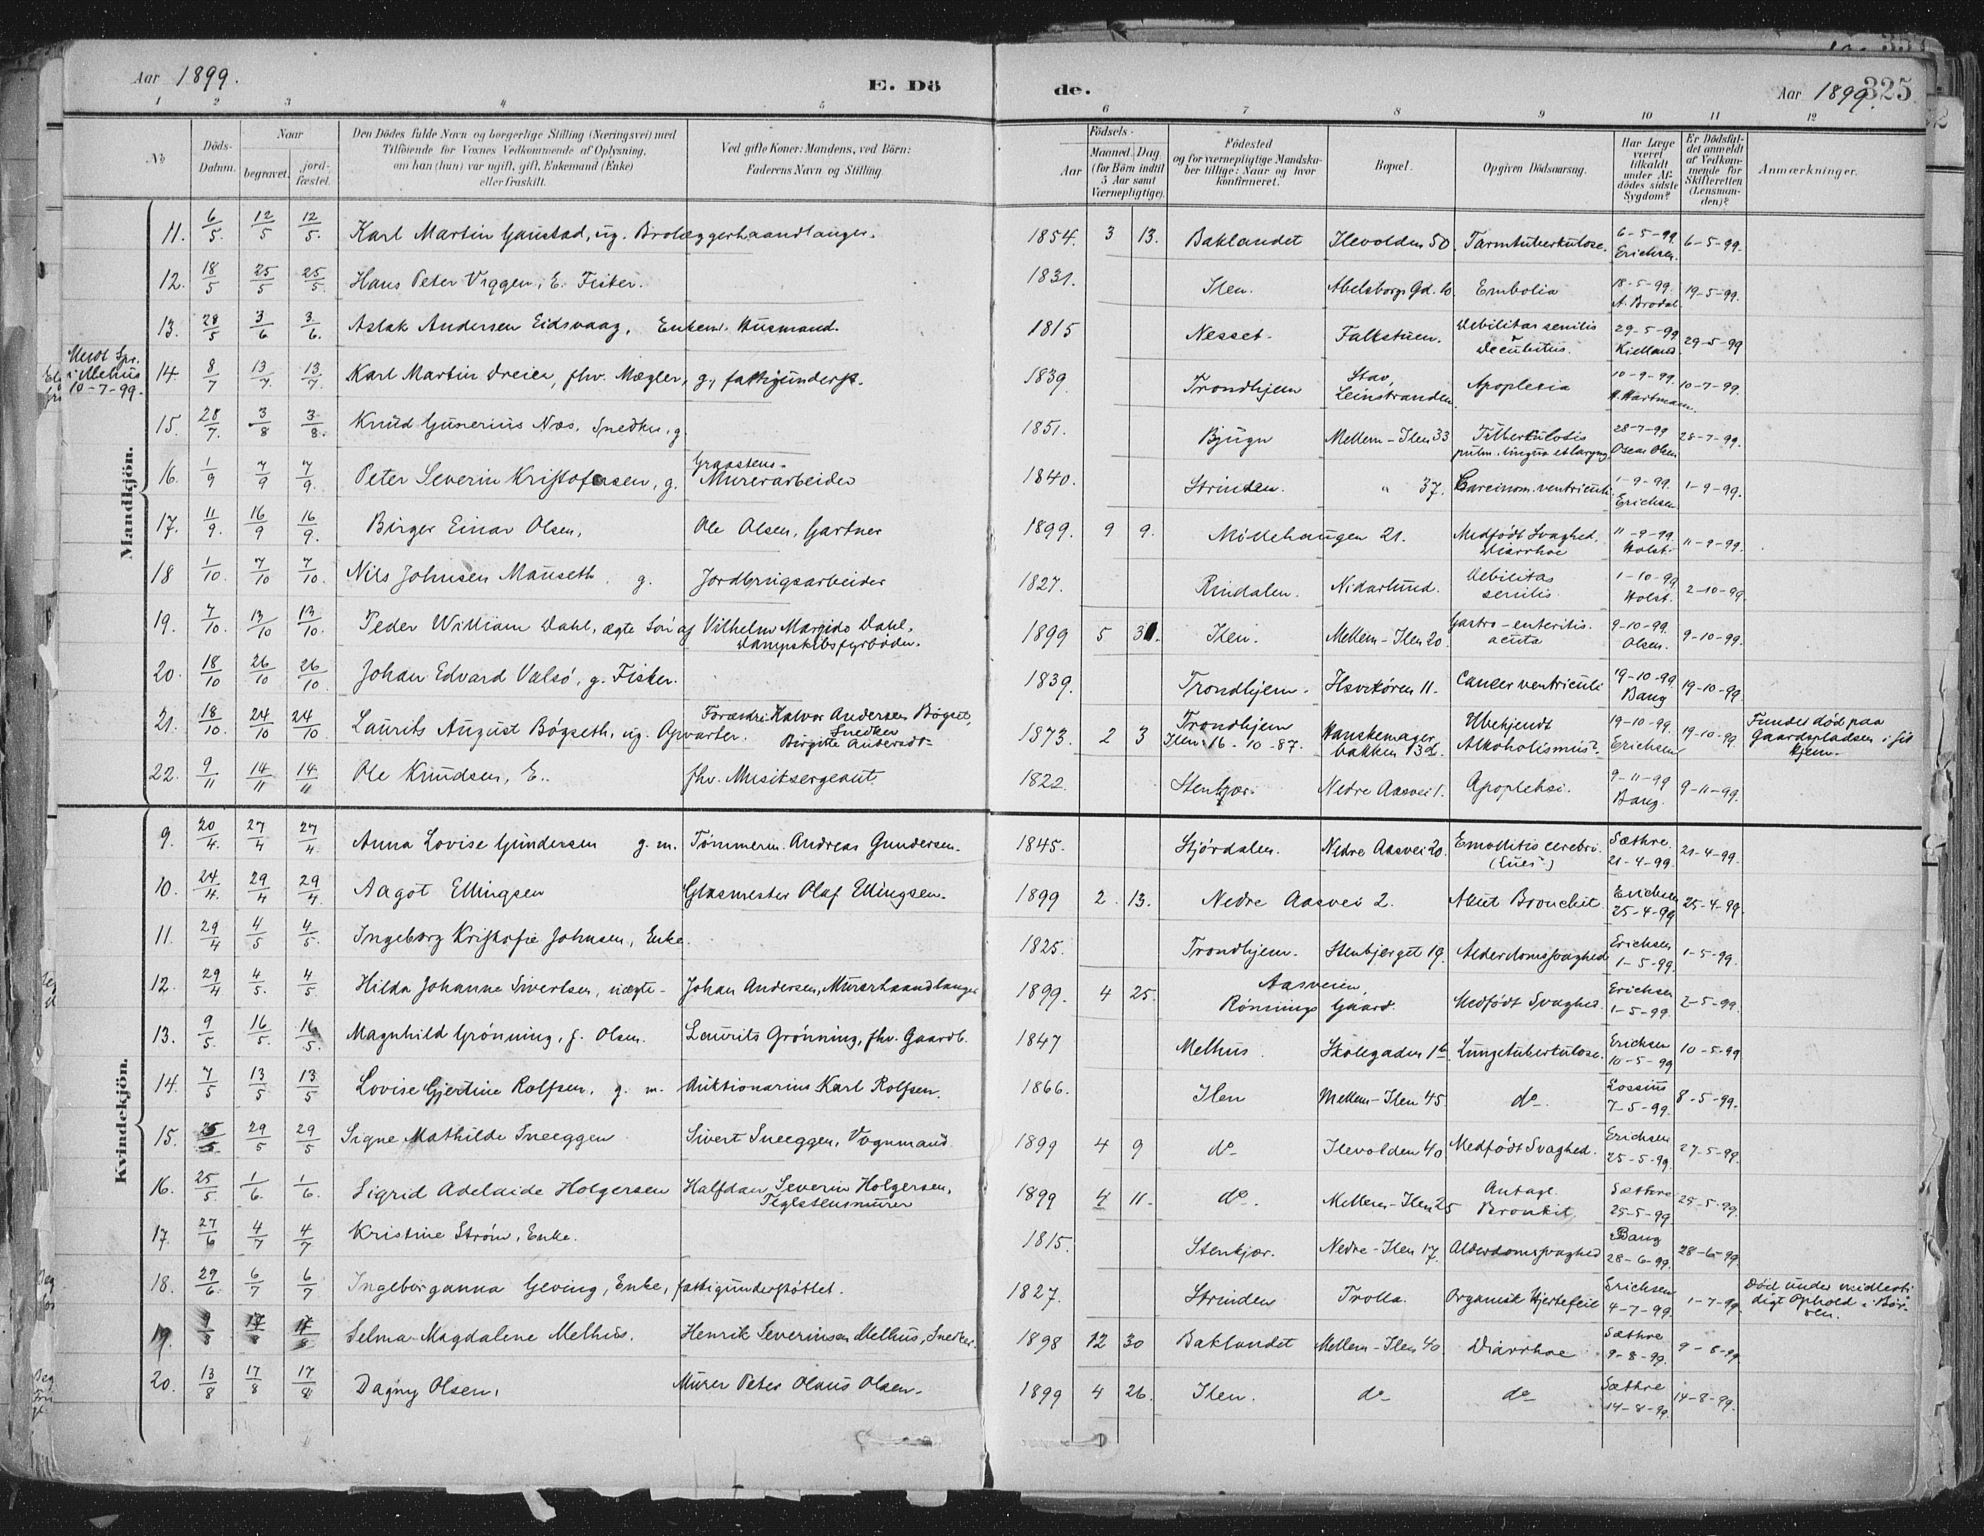 Aar 1899. E. Dö de. Aar 1899. 325
1 2 3 4 5 6 7 8 9 10 11 12
No Döds-Datum. Naar begravet. jordfæstet. Den Dödes fulde Navn og borgerlige Stilling (Næringsvei) med Tilföiende for Voxnes Vedkommende af Oplysning, om han (hun) var ugift, gift, Enkemand (Enke) eller fraskilt. Ved gifte Koner: Mandens, ved Börn: Faderens Navn og Stilling. Födsels- Aar Maaned. Dag (for Börn indtil 5 Aar samt Værnepligtige). Födested og for værnepligtige Mandskaber tillige: Naar og hvor konfirmeret. Bopæl. Opgiven Dödsaarsag. Har Læge været tilkaldt under Afdödes sidste Sygdom? Er Dödsfaldet anmeldt af Vedkommende for Skifteretten (Lensmanden)? Anmærkninger.
Mandkjön.
11. 6/5. 12/5 12/5. Karl Martin Gaustad, ug. Brolæggerhaandlanger. 1854. 3 13. Baklandet Ilevolden 50 Tarmtuberkulose. 6-5-99. Erichsen. 6-5-99.
12. 18/5 25/5 25/5. Hans Peter Viggen, E. Fisker. 1831. Ilen. Abelsborgs Gd. 10. Embolia 18-5-99. A. Brodal 19-5-99.
13. 28/5 3/6 3/6. Aslak Andersen Eidsvaag, Enkem. Husmand. 1815 Nesset. Falkstuen. Debilitas senilis Decubitus. 29-5-99 Kielland 29-5-99
10-7-99. 14. 8/7 13/7 13/7. Karl Martin Dreier, fhv. Mægler, g., fattigunderst. 1839. Trondhjem Stav, Leinstranden. Apoplexia 10-9-99. H. Hartmann. 10-7-99.
15. 28/7. 3/8 3/8. Knud Gunerius Næs. Snedker, g. 1851. Bjugn Mellem-Ilen 33 Tuberkulosis pulm. lingua et laryng. 28-7-99 Oscar Olsen 28-7-99.
16. 1/9 7/9 7/9. Peter Severin Kristofersen, g. Graastens-Murerarbeider 1840. Strinden. " 37. Carcinom. ventriculi 1-9-99. Erichsen 1-9-99.
17. 11/9. 16/9 16/9. Birger Einar Olsen, Ole Olsen, Gartner 1899. 9 9. Möllehaugen 21. Medfödt Svaghed, Diarrhoe 11-9-99. Holst. 11-9-99.
18 1/10. 7/10 7/10. Nils Johnsen Mauseth. g. Jordbrugsarbeider 1827. Rindalen. Nidarlund. Debilitas senilis. 1-10-99 Holst. 2-10-99.
19. 7/10. 13/10 13/10. Peder William Dahl, ægte Sön af Vilhelm Marsido Dahl, Dampskibsfyrböder. 1899 5 31. Ilen. Mellem-Ilen 20. Gastro-enteritis acuta 9-10-99. Olsen. 9-10-99.
20. 18/10 26/10 26/10. Johan Edvard Valsö, g. Fisker. 1839. Trondhjem. Havekören 11. Cancer ventriculi 19-10-99 Bang 19-10-99.
21. 18/10. 24/10 24/10. Laurits August Bögseth, ug. Opvarter. Forældre: Halvor Andersen Bögset, Snedker Birgitte Andersdt- 1873. 2 3 Trondhjem Ilen 16-10-87. Hanskemagerbakken 13d. Ubekjendt Alkoholismus? 19-10-99. Erichsen 19-10-99. Fundet död paa Gaardspladsen i sit Hjem.
22. 9/11 14/11 14/11 Ole Knudsen, E. fhv. Musiksergeant. 1822. Stenkjær. Nedre Aasvei 1. Apopleksi. 9-11-99 Bang. 9-11-99.
Kvindekjön.
9. 20/4. 27/4 27/4. Anna Lovise Gundersen g. m. Tömmerm. Andreas Gundersen. 1845. Stjördalen. Nedre Aasvei 20. Emollitis cerebri. (Lues) Sæthre. 21-4-99. 21-4-99.
10. 24/4. 29/4 29/4. Aagot Ellingsen Glasmester Olaf Ellingsen. 1899 2. 13. Nedre Aasvei 2. Akut Bronchit Erichsen 25-4-99 25-4-99.
11. 29/4 4/5 4/5. Ingeborg Kristofie Johnsen, Enke. 1825. Trondhjem. Stenbjerget 19. Alderdomssvaghed Erichsen 1-5-99. 1-5-99.
12. 29/4 4/5. 4/5. Hilda Johanne Sivertsen, uægte- Johan Andersen, Murerhaandlanger 1899. 4 25. Aasveien, Rönnings Gaard. Medfödt Svaghed. Erichsen 1-5-99. 2-5-99.
13. 9/5. 16/5. 16/5. Magnhild Grönning, f. Olsen. Laurits Grönning, fhv. Gaardb. 1847 Melhus. Skolegaden 1b Lungetuberkulose. Erichsen 10-5-99 10-5-99
14. 7/5 13/5 13/5 Lovise Gjertine Rolfsen, g. m. Auktionarius Karl Rolfsen. 1866. Ilen Mellem-Ilen 45. do. Lossius 7-5-99. 8-5-99.
15. 25/5. 29/5 29/5 Signe Mathilde Sneeggen Sivert Sneeggen, Vognmand 1899 4 9 do Ilevolden 40 Medfödt Svaghed. Erichsen 25-5-99. 27-5-99.
16. 25/5. 1/6. 1/6. Sigrid Adelaide Holgersen Halfdan Severin Holgersen, Teglstensmurer 1899 4 11. do. Mellem-Ilen 25 Antagl. Bronkit, Sæthre 25-5-99 25-5-99.
17. 27/6 4/7 4/7 Kristine Ström, Enke. 1815. Stenkjær. Nedre-Ilen 17. Alderdomssvaghed Bang 28-6-99. 28-6-99.
18. 29/6. 6/7 6/7 Ingeborganna Gleving, Enke, fattigunderstöttet. 1827. Strinden Trolla. Organisk Hjertefeil Erichsen 4-7-99. 1-7-99. Död under midlertidigt Ophold i Börsen.
19. 9/8 17/8 17/8 Selma Magdalene Melhus. Henrik Severinsen Melhus, Snedker. 1898 12 30 Baklandet Mellem-Ilen 40. Diarrhoe Sæthre 9-8-99. 9-8-99
20. 13/8 17/8 17/8 Dagny Olsen, Murer Peter Olaus Olsen. 1899 4 26. Ilen. do do Sæthre 14-8-99. 14-8-99.